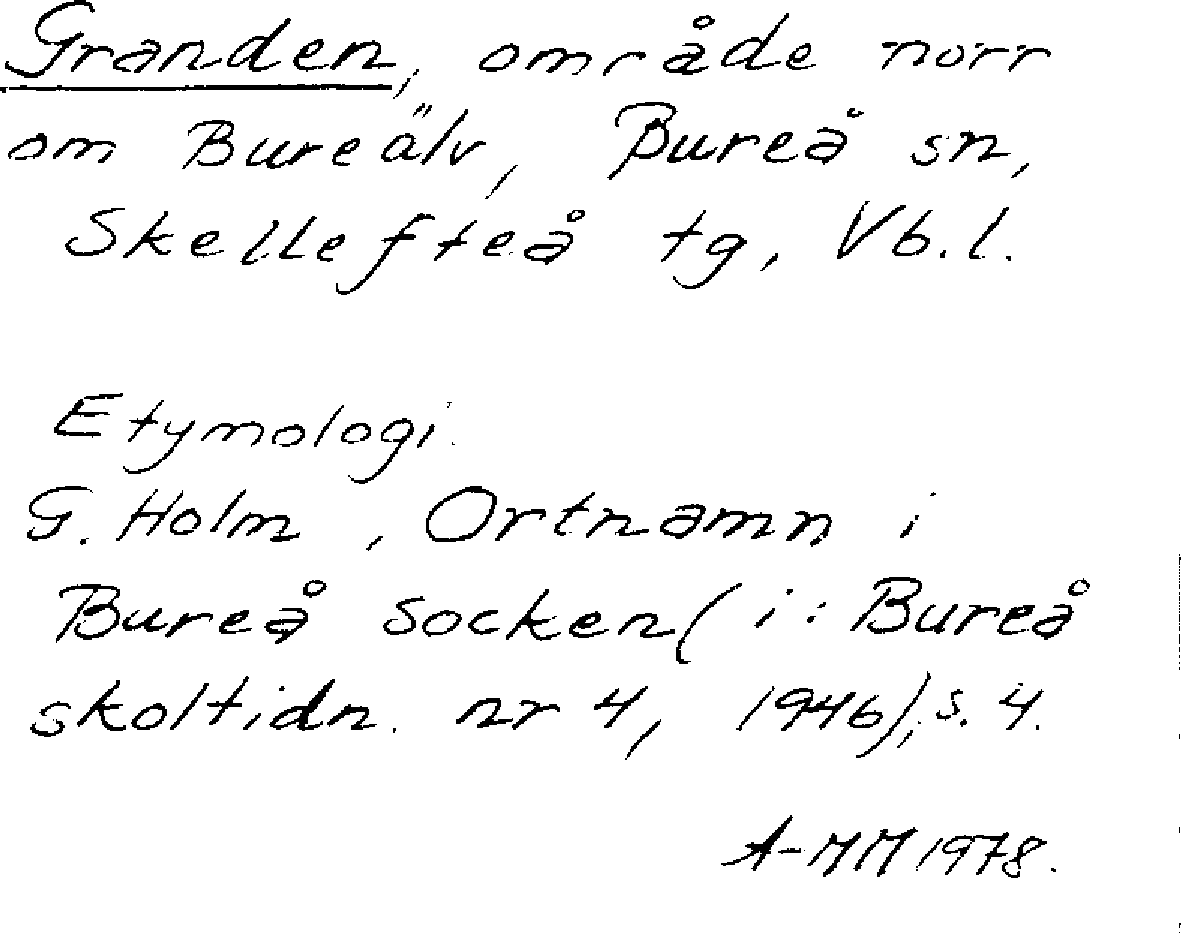 Granden, område norr
om Bureälv, Bureå sn,
Skellefteå tg, Vb.l.
Etymologi.
G. Holm, Ortnamn i
Bureå socken (i: Bureå
skoltidn. nr 4, 1946), s. 4.
A-MM 1978.